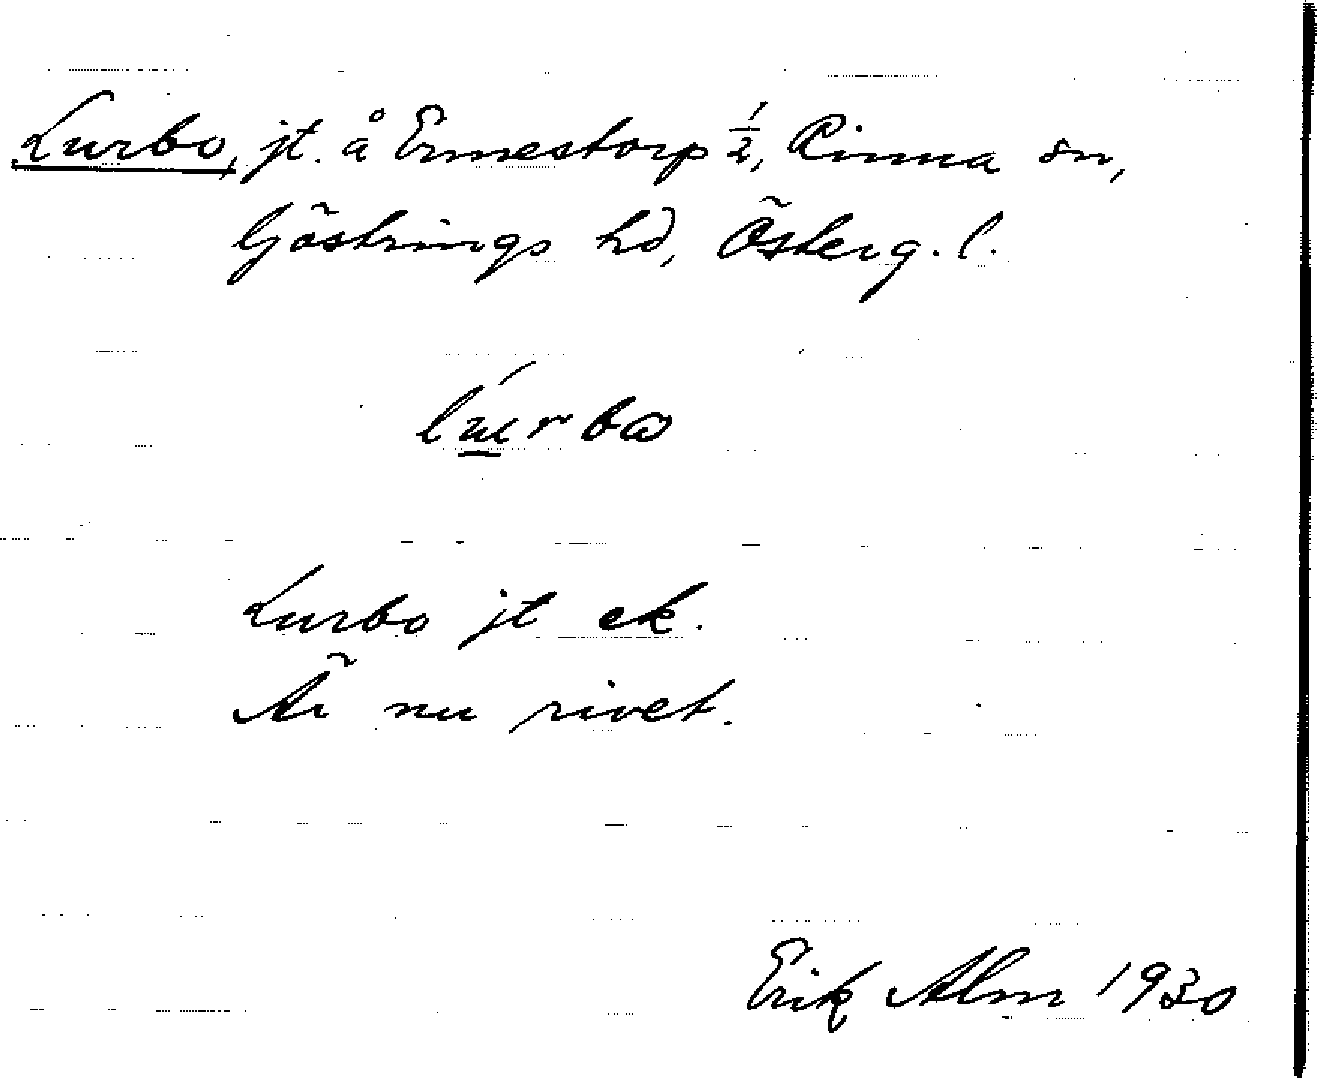 Lurbo, jt. å Ernestorp 1/2, Rinna sn,
Göstrings hd, Österg. l.
Lurbo jt ek.
Är nu rivet.
Erik Alm 1930